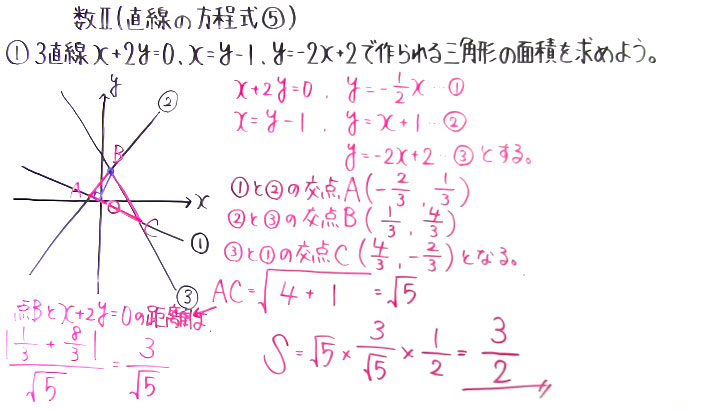 数Ⅱ(直線の方程式⑤)
① 3直線 x+2y=0、x=y-1、y=-2x+2で作られる三角形の面積を求めよう。
x+2y=0 , y=-1/2x…①
x=y-1 , y=x+1…②
y=-2x+2…③とする。
①と②の交点A(-2/3, 1/3)
②と③の交点B(1/3, 4/3)
③と①の交点C(4/3, -2/3)となる。
y
②
B
A
O
x
C
①
③
AC=√4+1=√5
点Bとx+2y=0の距離は
|1/3+8/3|/√5=3/√5
S=√5×3/√5×1/2=3/2